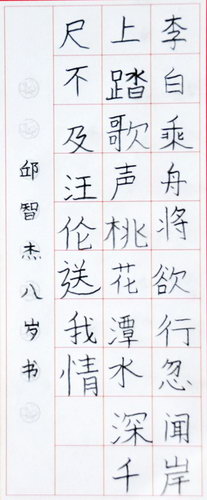 李白乘舟将欲行忽闻岸
上踏歌声桃花潭水深千
尺不及汪伦送我情
邱智杰八岁书